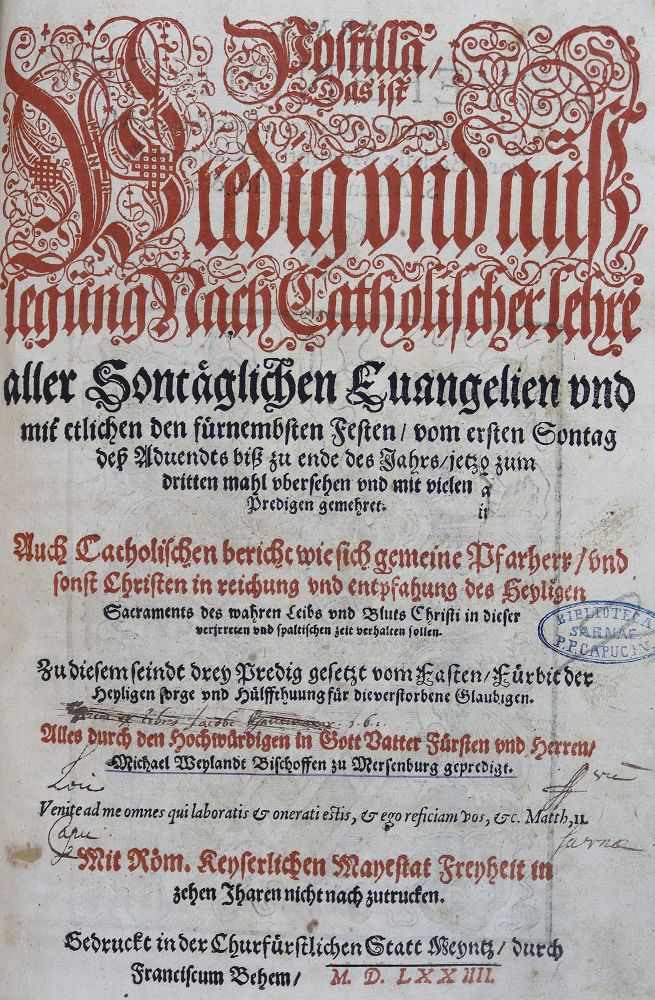 Postilla,
Das ist
Predig vnd auß,
legung Nach Catholischer lehre
aller Sontäglichen Euangelien vnd
mit etlichen den fürnembsten Festen / vom ersten Sontag
deß Aduendts biß zu ende des Jahrs / jetzo zum
dritten mahl vbersehen vnd mit vielen
Predigen gemehret.
Auch Catholischen bericht wie sich gemeine Pfarherr / vnd
sonst Christen in reichung vnd entpfahung des Heyligen
Sacraments des wahren Leibs vnd Bluts Christi in dieser
verjrreten vnd spaltischen zeit verhalten sollen.
BIBLIOTECA
SARNAE
P.P. CAPUCIN
Zu diesem seindt drey Predig gesetzt vom Fasten / Fürbit der
Heyligen sorge vnd Hülffthuung für die verstorbene Glaubigen.
Alles durch den Hochwürdigen in Gott Vatter Fürsten vnd Herren /
Michael Weylandt Bischoffen zu Mersenburg gepredigt.
Loci
Venite ad me omnes qui laboratis & onerati estis, & ego reficiam vos, &c. Matth, 11.
Capu
Sarnae
Mit Röm. Keyserlichen Mayestat Freyheit in
zehen Jharen nicht nach zutrucken.
Gedruckt in der Churfürstlichen Statt Meyntz / durch
Franciscum Behem / M. D. LXXIIII.